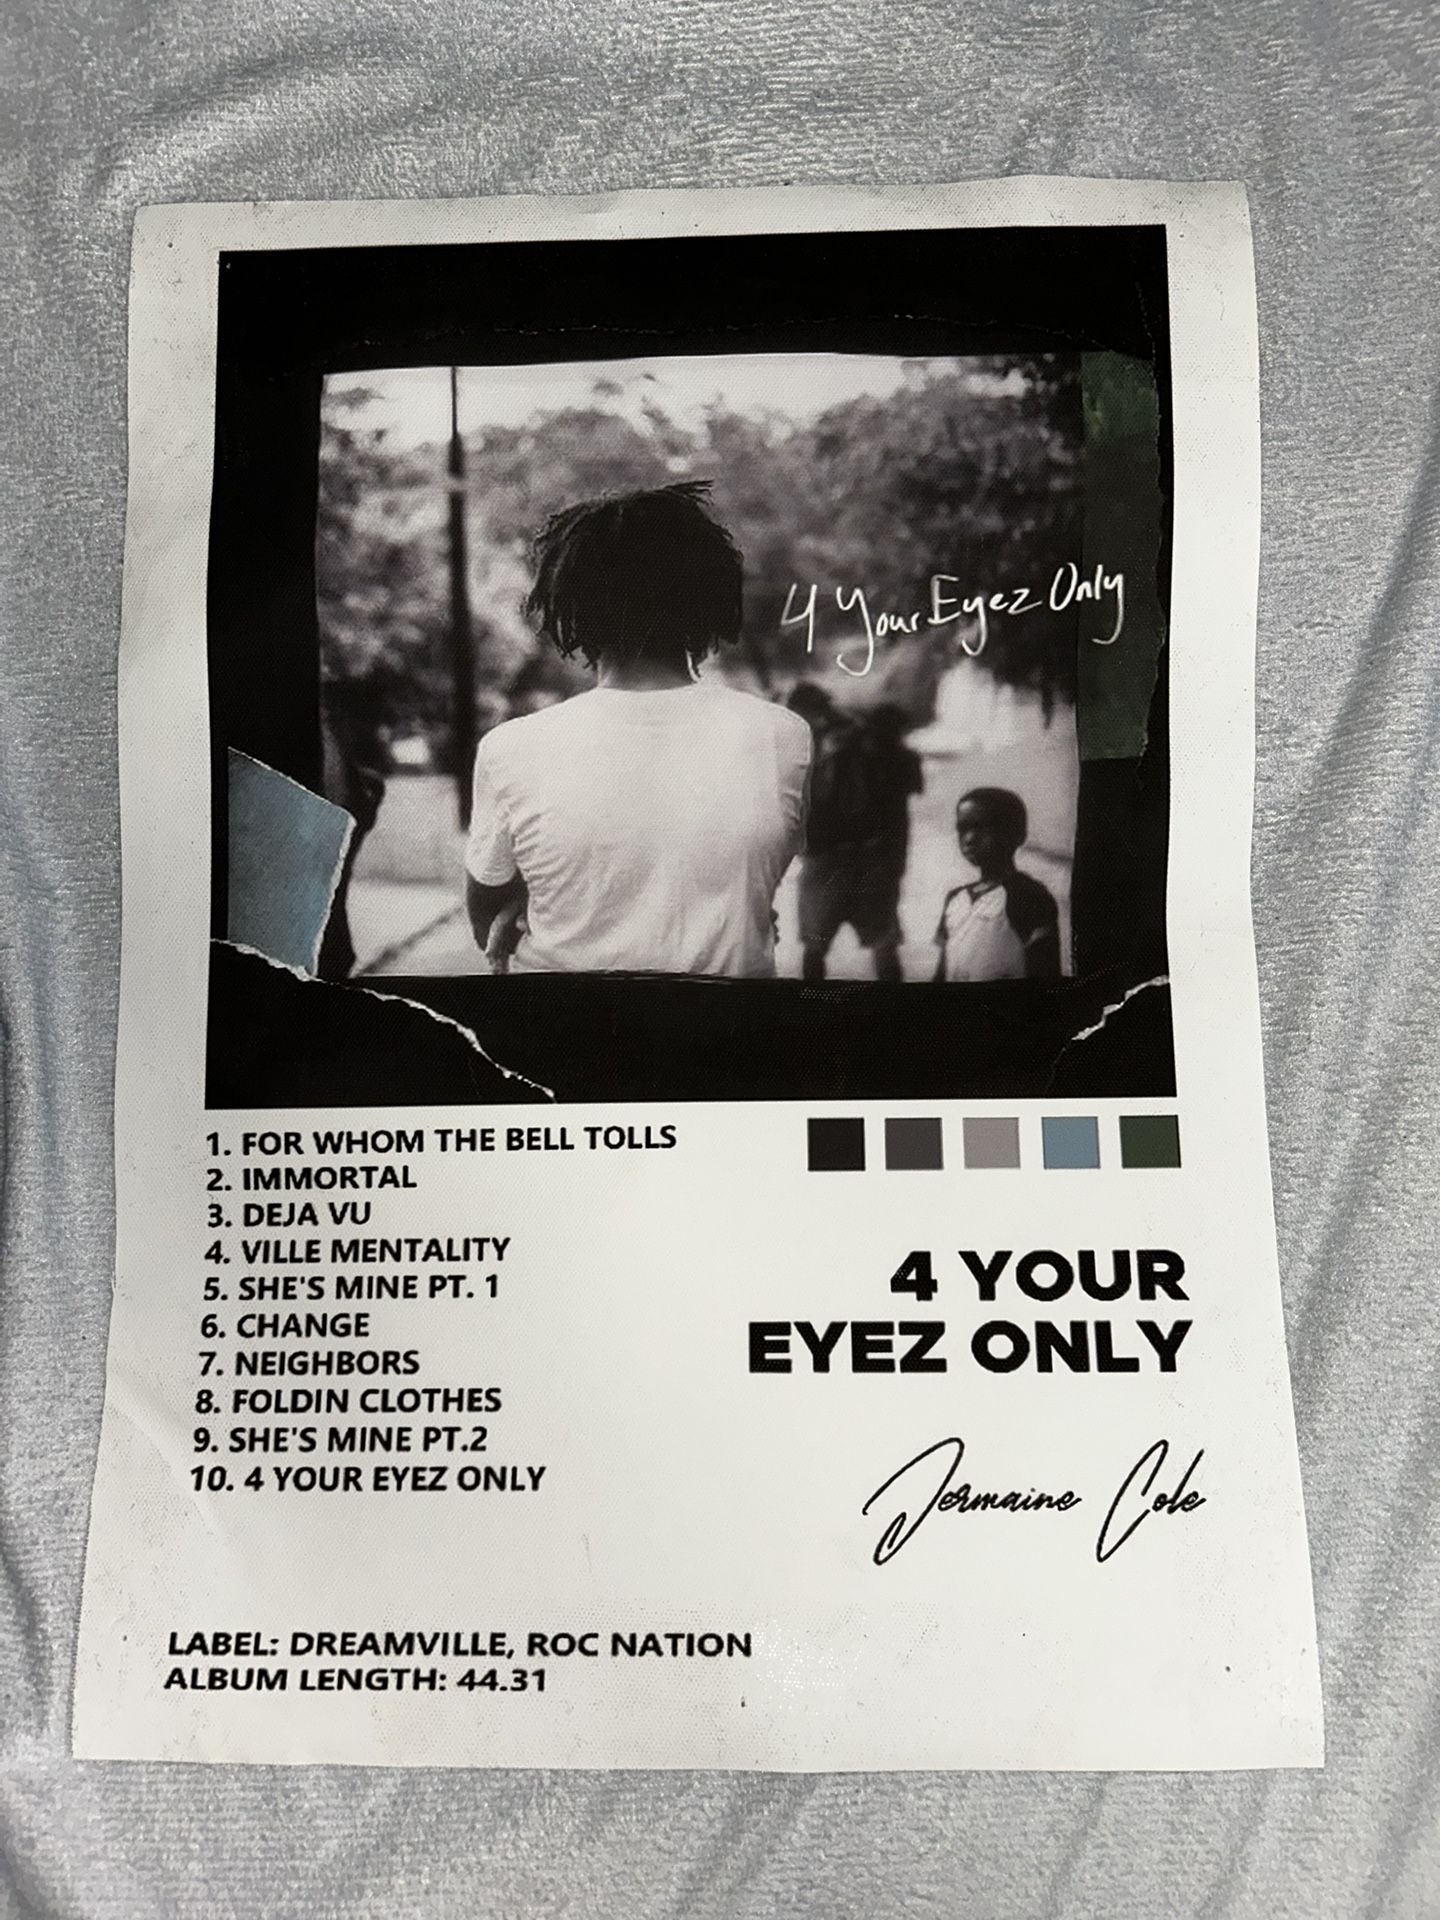 4 Your Eyez Only
1. FOR WHOM THE BELL TOLLS
2. IMMORTAL
3. DEJA VU
4. VILLE MENTALITY
5. SHE'S MINE PT. 1
6. CHANGE
7. NEIGHBORS
8. FOLDIN CLOTHES
9. SHE'S MINE PT.2
10. 4 YOUR EYEZ ONLY
4 YOUR
EYEZ ONLY
Jermaine Cole
LABEL: DREAMVILLE, ROC NATION
ALBUM LENGTH: 44.31